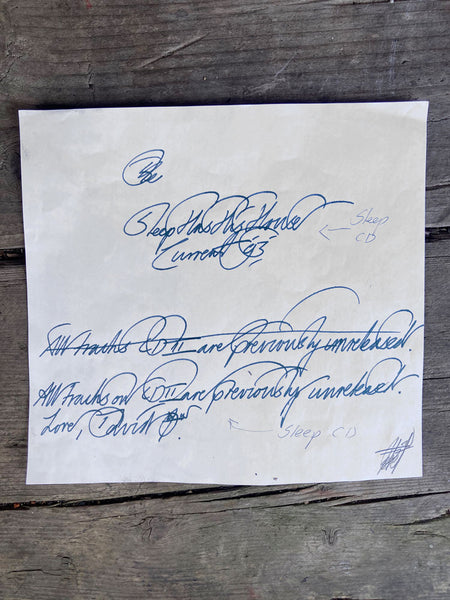 Be
Sleep Has His House
Sleep
CD
Current 93
All Tracks CD II are previously unreleased.
All Tracks on CD II are previously unreleased.
Love, David
Sleep CD